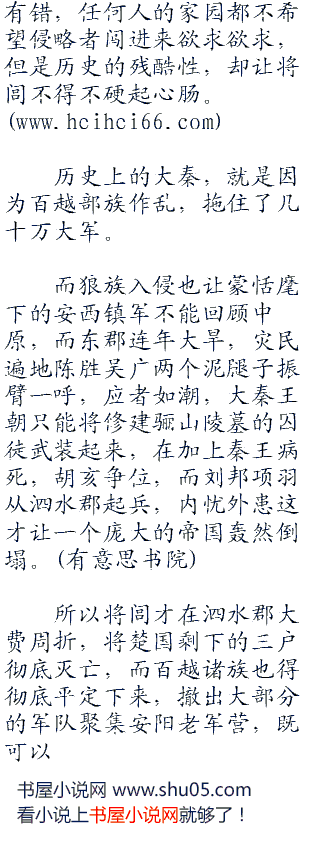 有错，任何人的家园都不希
望侵略者闯进来欲求欲求，
但是历史的残酷性，却让将
闾不得不硬起心肠。
(www.hcihci66.com)
历史上的大秦，就是因
为百越部族作乱，拖住了几
十万大军。
而狼族入侵也让蒙恬麾
下的安西镇军不能回顾中
原，而东郡连年大旱，灾民
遍地陈胜吴广两个泥腿子振
臂一呼，应者如潮，大秦王
朝只能将修建骊山陵墓的囚
徒武装起来，在加上秦王病
死，胡亥争位，而刘邦项羽
从泗水郡起兵，内忧外患这
才让一个庞大的帝国轰然倒
塌。(有意思书院)
所以将闾才在泗水郡大
费周折，将楚国剩下的三户
彻底灭亡，而百越诸族也得
彻底平定下来，撤出大部分
的军队聚集安阳老军营，既
可以
书屋小说网 www.shu05.com
看小说上书屋小说网就够了！